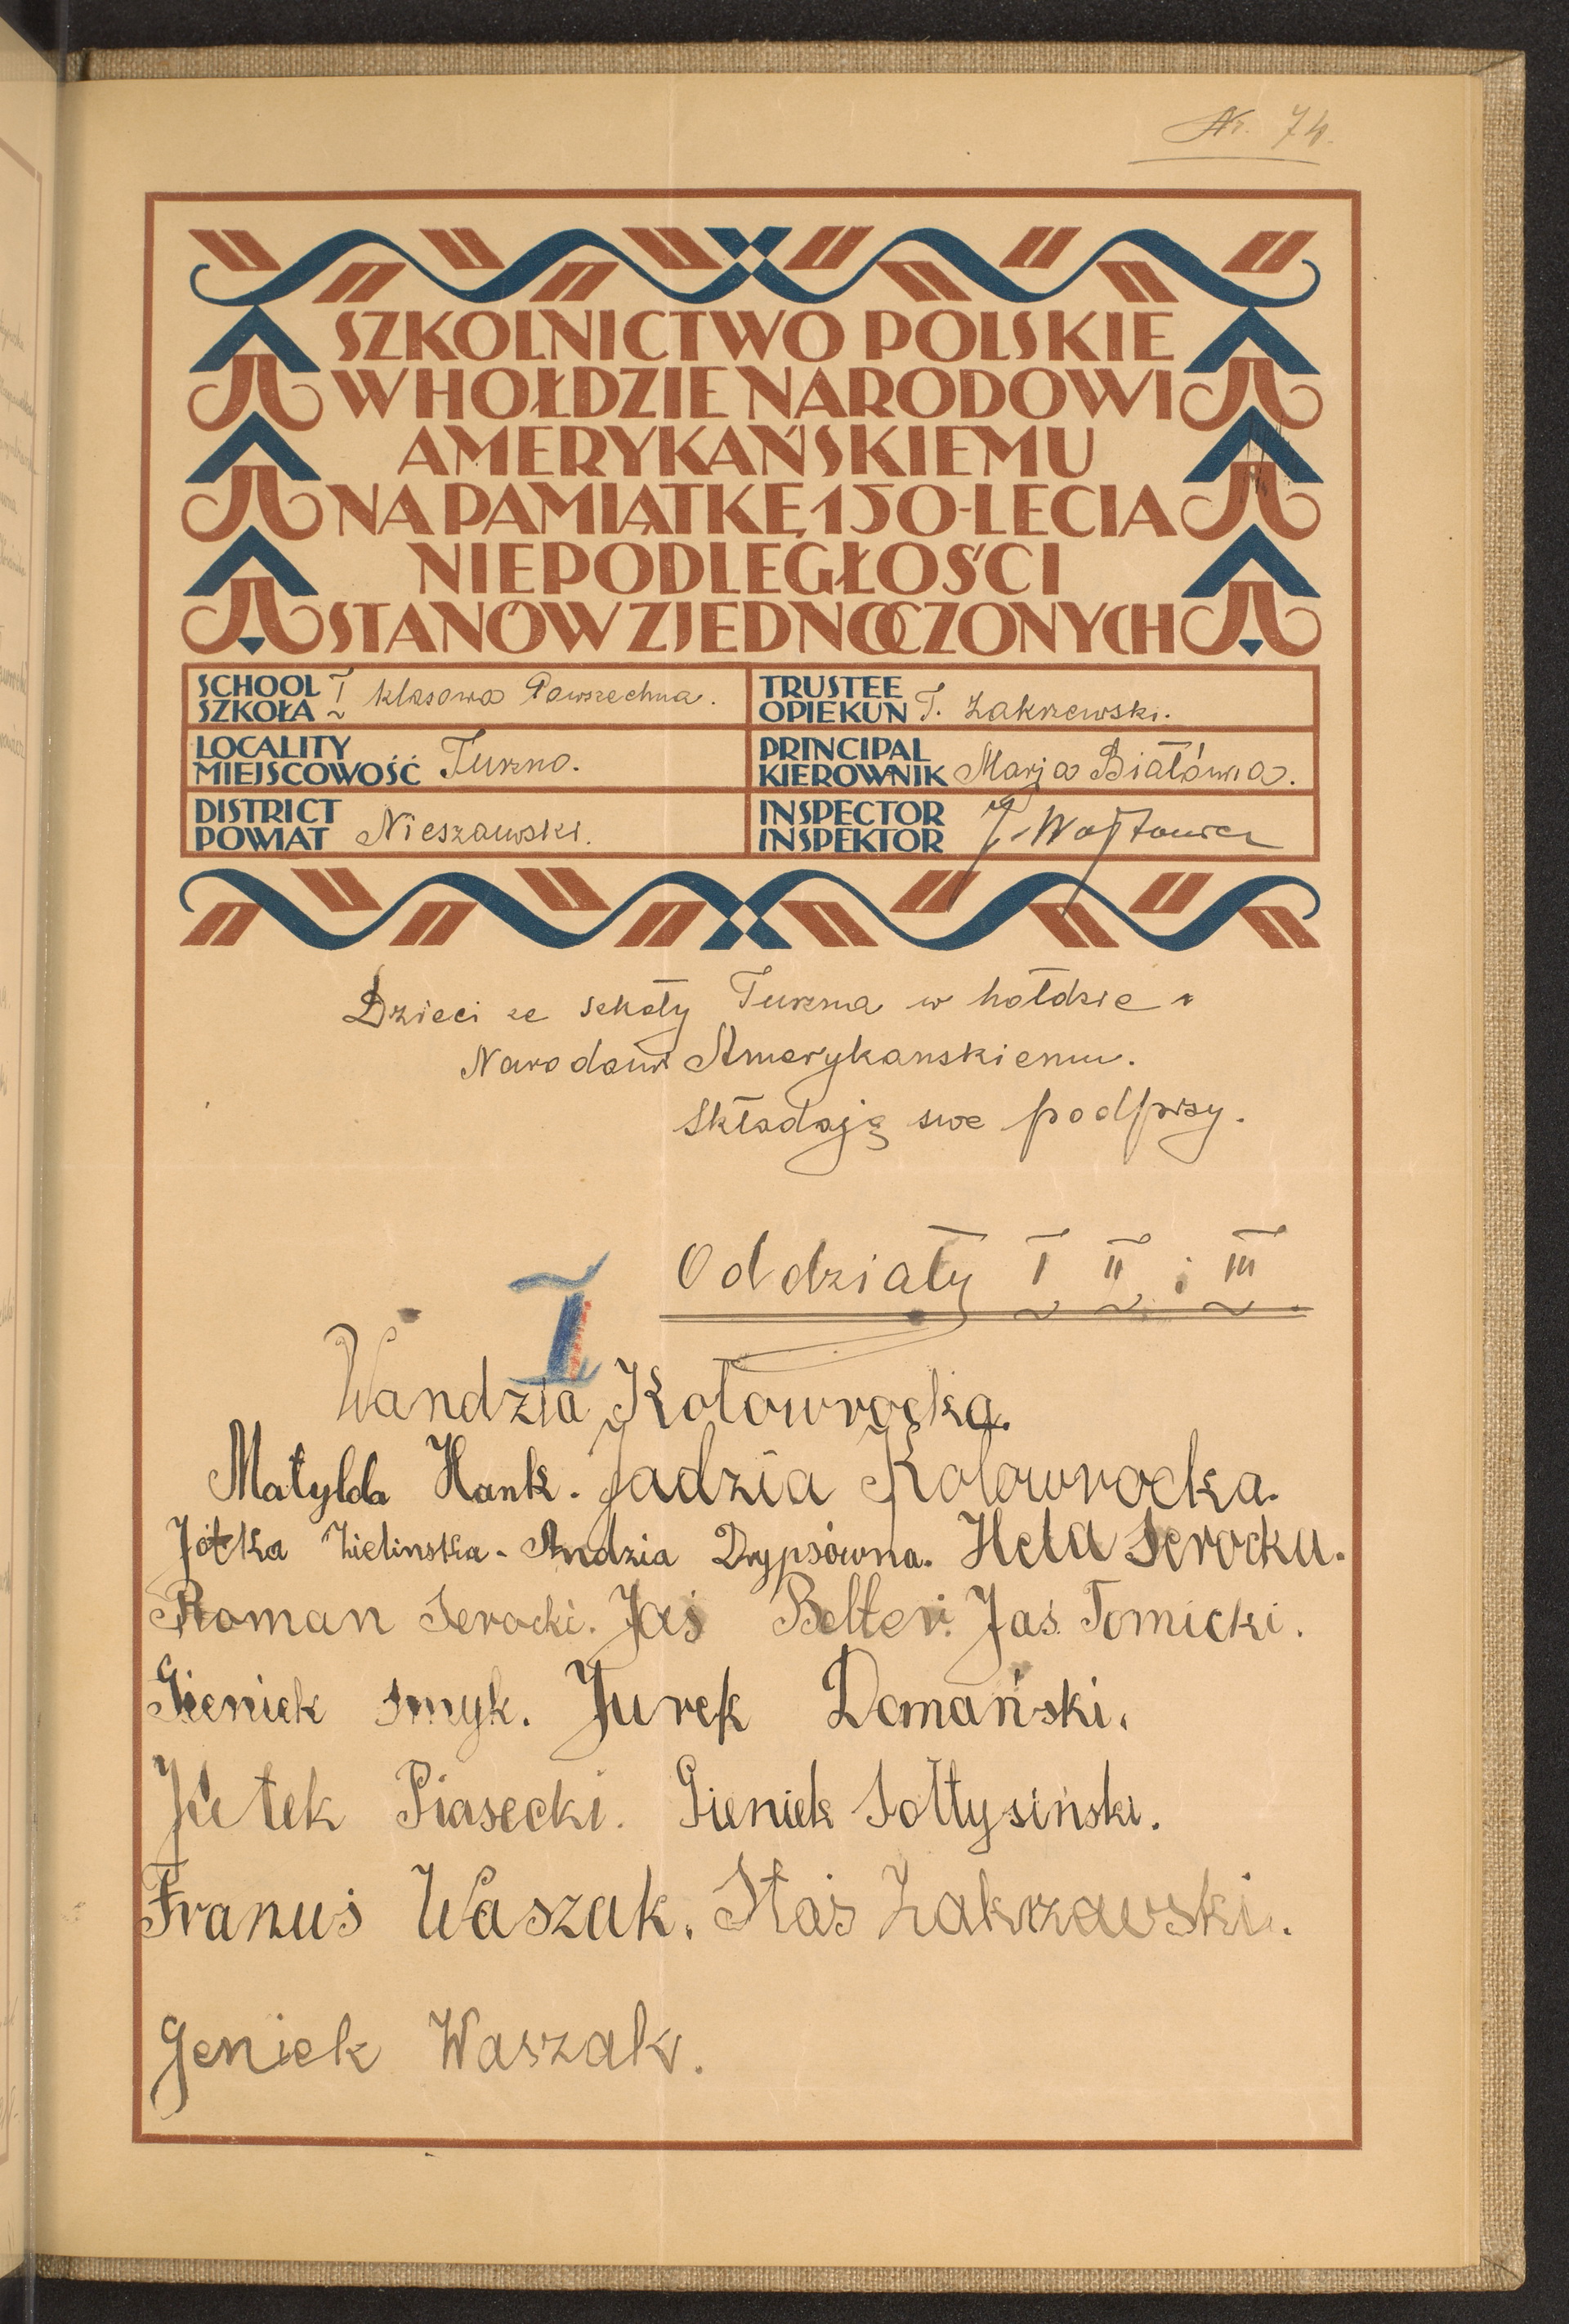 Nr. 74.
SZKOLNICTWO POLSKIE
W HOŁDZIE NARODOWI
AMERYKAŃSKIEMU
NA PAMIĄTKĘ 150-LECIA
NIEPODLEGŁOŚCI
STANÓW ZJEDNOCZONYCH
SCHOOL
SZKOŁA I klasowa Powszechna.
TRUSTEE
OPIEKUN T. Zakrzewski.
LOCALITY
MIEJSCOWOŚĆ Turzno.
PRINCIPAL
KIEROWNIK Marja Białówna.
DISTRICT
POWIAT Nieszawski.
INSPECTOR
INSPEKTOR J. Wojtowicz
Dzieci ze szkoły Turzna w hołdzie
Narodowi Amerykanskiemu.
Składają swe podpisy.
Oddziały I II i III.
I
Wandzia Kołowrocka.
Matylda Hank. Jadzia Kołowrocka.
Zielinska - Andzia Drypsówna. Hela Serocka.
Roman Serocki. Jaś Belter. Jaś. Tomicki.
Gieniek Smyk. Jurek Domański.
Piasecki. Gieniek Sołtysiński.
Franuś Waszak. Staś Zakrzawski.
Geniek Waszak.